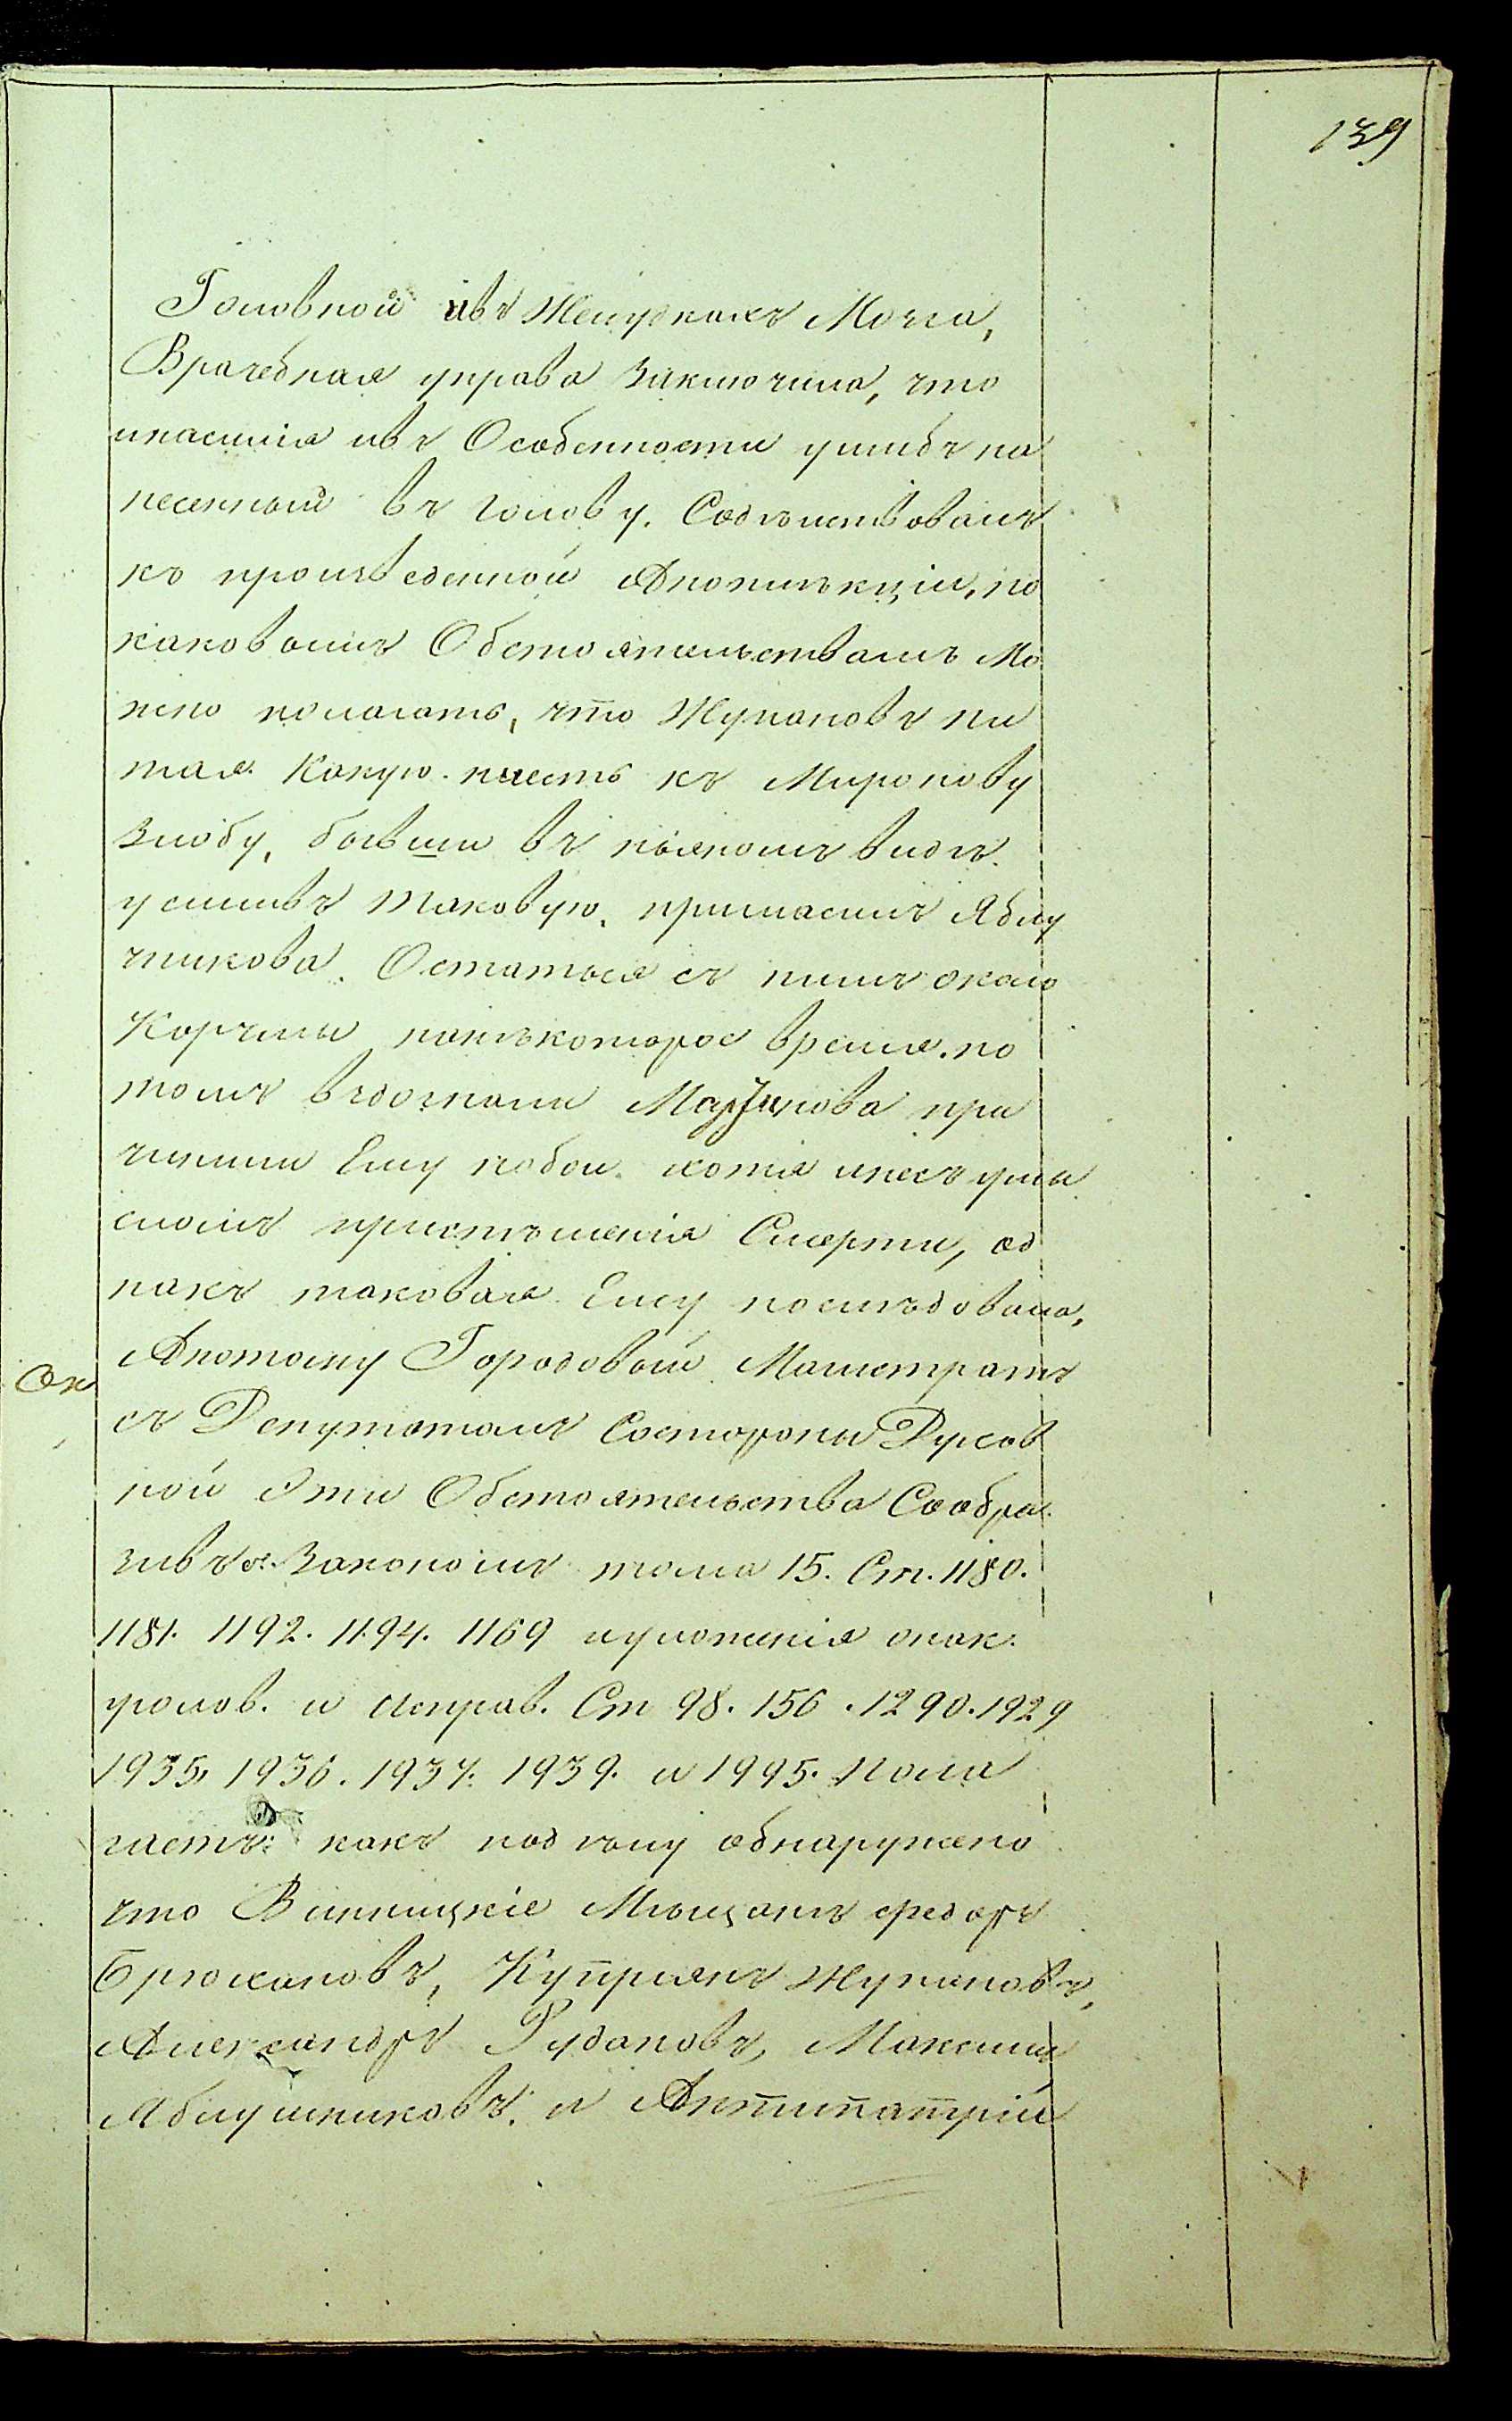 139
Головной ивъ Желудкахъ Мозга,
Врачебная управа заключила, что
инасилія ивъ Особенности ушибъ на
несенный въ голову. Содѣйствовалъ
къ произведенной Апоплѣкціи, по
каковымъ Обстоятельствамъ Мо
жно полагать, что Жупановъ пи
тая Какую нжесть къ Миронову
Злобу, бывши въ пьяномъ видѣ
усиливъ таковую, пригласилъ Яблу
чникова. Остаться съ нимъ около
Корчмы нанѣкоторое время, по
томъ вѣдогнали при
чинили Ему побои. хотя инесъ умы
сломъ пристѣченія Смерти, од
накъ таковая Ему послѣдовала,
Апотому Городовый Магистратъ
Ок
съ Депутатомъ Состороны Духов
ной Эти Обстоятельства Сообра
зивъ съ Закономъ тома 15. Ст. 1180.
1181. 1192. 1194. 1169 иуложенія онак.
уголов. и исправ. Ст 98. 156. 1290. 1929
1935, 1936. 1937. 1939. и 1995. Пола
гаетъ: какъ подѣлу обнаружено
что Винницкіе Мѣщанъ Федоръ
Брюхановъ, Купріянъ Жупановъ,
Александръ Рудановъ, Максимъ
Яблушниковъ. и Антипатрій